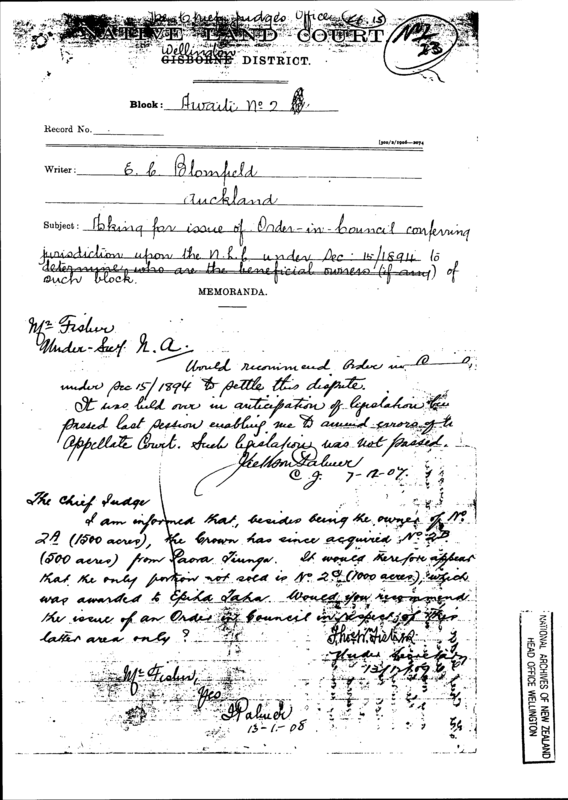 The Chief Judge's Office
NATIVE LAND COURT
Wellington
GISBORNE DISTRICT.
Block: Awaiti No 2
Record No.
Writer: E. C. Blomfield
Auckland
Subject: Asking for issue of Order-in-Council conferring
jurisdiction upon the N.L.C under Sec: 15/1894 to
determine who are the beneficial owners (if any) of
such block.
MEMORANDA.
Mr Fisher
Under-Secy N.A.
Would recommend Order in C
under sec 15/1894 to settle this dispute.
It was held over in anticipation of legislation
passed last session enabling me to amend errors of the
Appellate Court. Such legislation was not passed.
Jackson Palmer
C J. 7-12-07.
The Chief Judge
I am informed that, besides being the owner of No
2A (1500 acres), the Crown has since acquired No 2B
(500 acres) from Paora Tiunga. It would therefore appear
that the only portion not sold is No 2C (1000 acres) which
was awarded to Epiha Taha. Would you recommend
the issue of an Order in Council in respect of this
later area only?
Thos W. Fisher
Under Secretary
Mr Fisher,
Yes
JPalmer
13-1-08
NATIONAL ARCHIVES OF NEW ZEALAND
HEAD OFFICE WELLINGTON